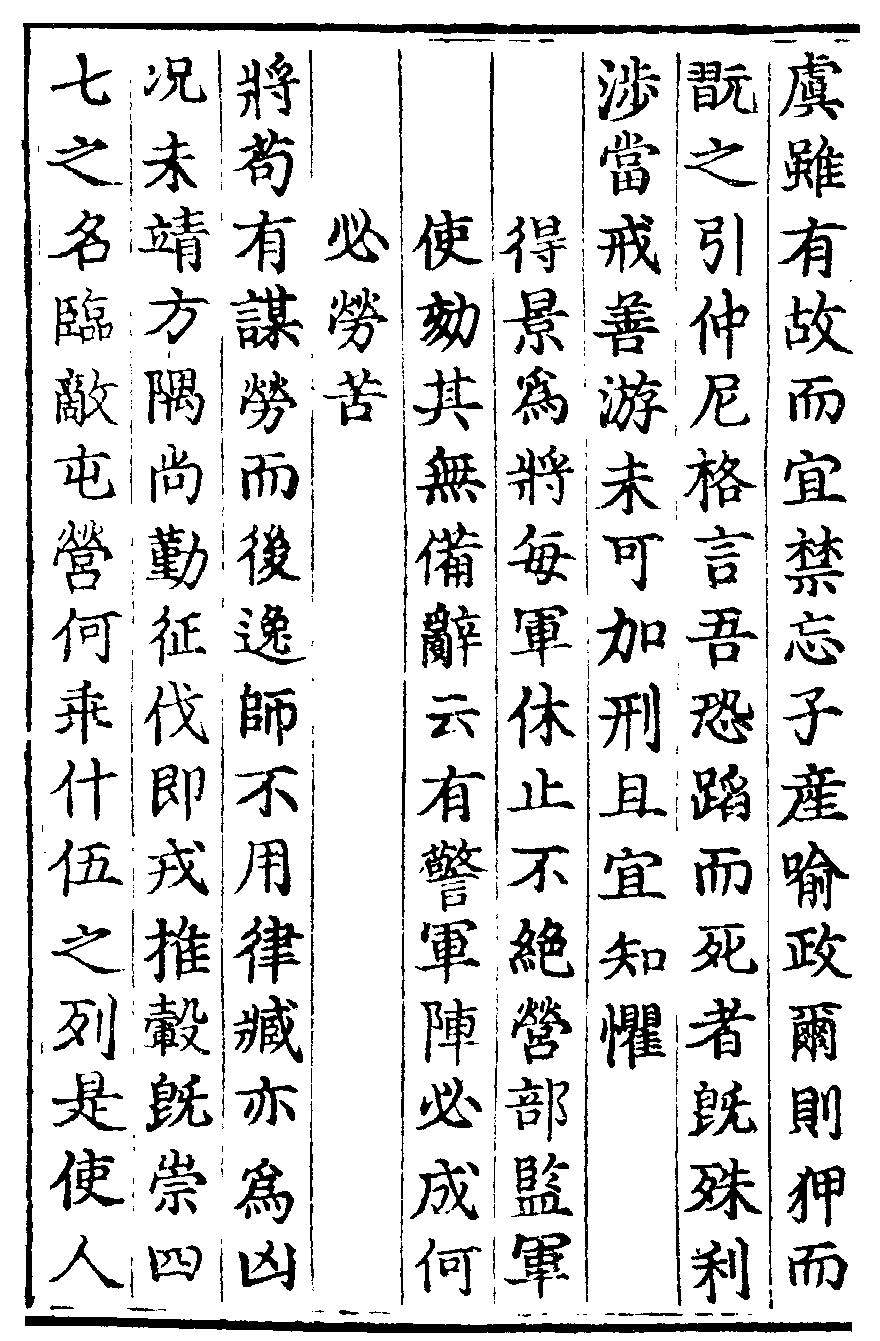 虞雖有故而宜禁忘子產喻政爾則狎而
翫之引仲尼格言吾恐蹈而死者旣殊利
涉當戒善游未可加刑且宜知懼
得景爲將每軍休止不絕營部監軍
使劾其無備辭云有警軍陣必成何
必勞苦
將苟有謀勞而後逸師不用律臧亦爲凶
况未靖方隅尚勤征伐即戎推轂旣崇四
七之名臨敵屯營何乖什伍之列是使人